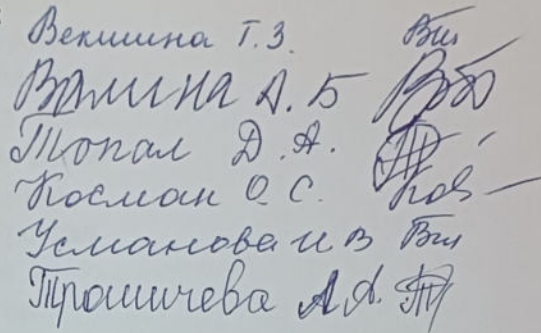 Векшина Т.З.
Валина А.Б
Топал Д.А.
Косман О.С.
Усманова И В
Трошичева А А.